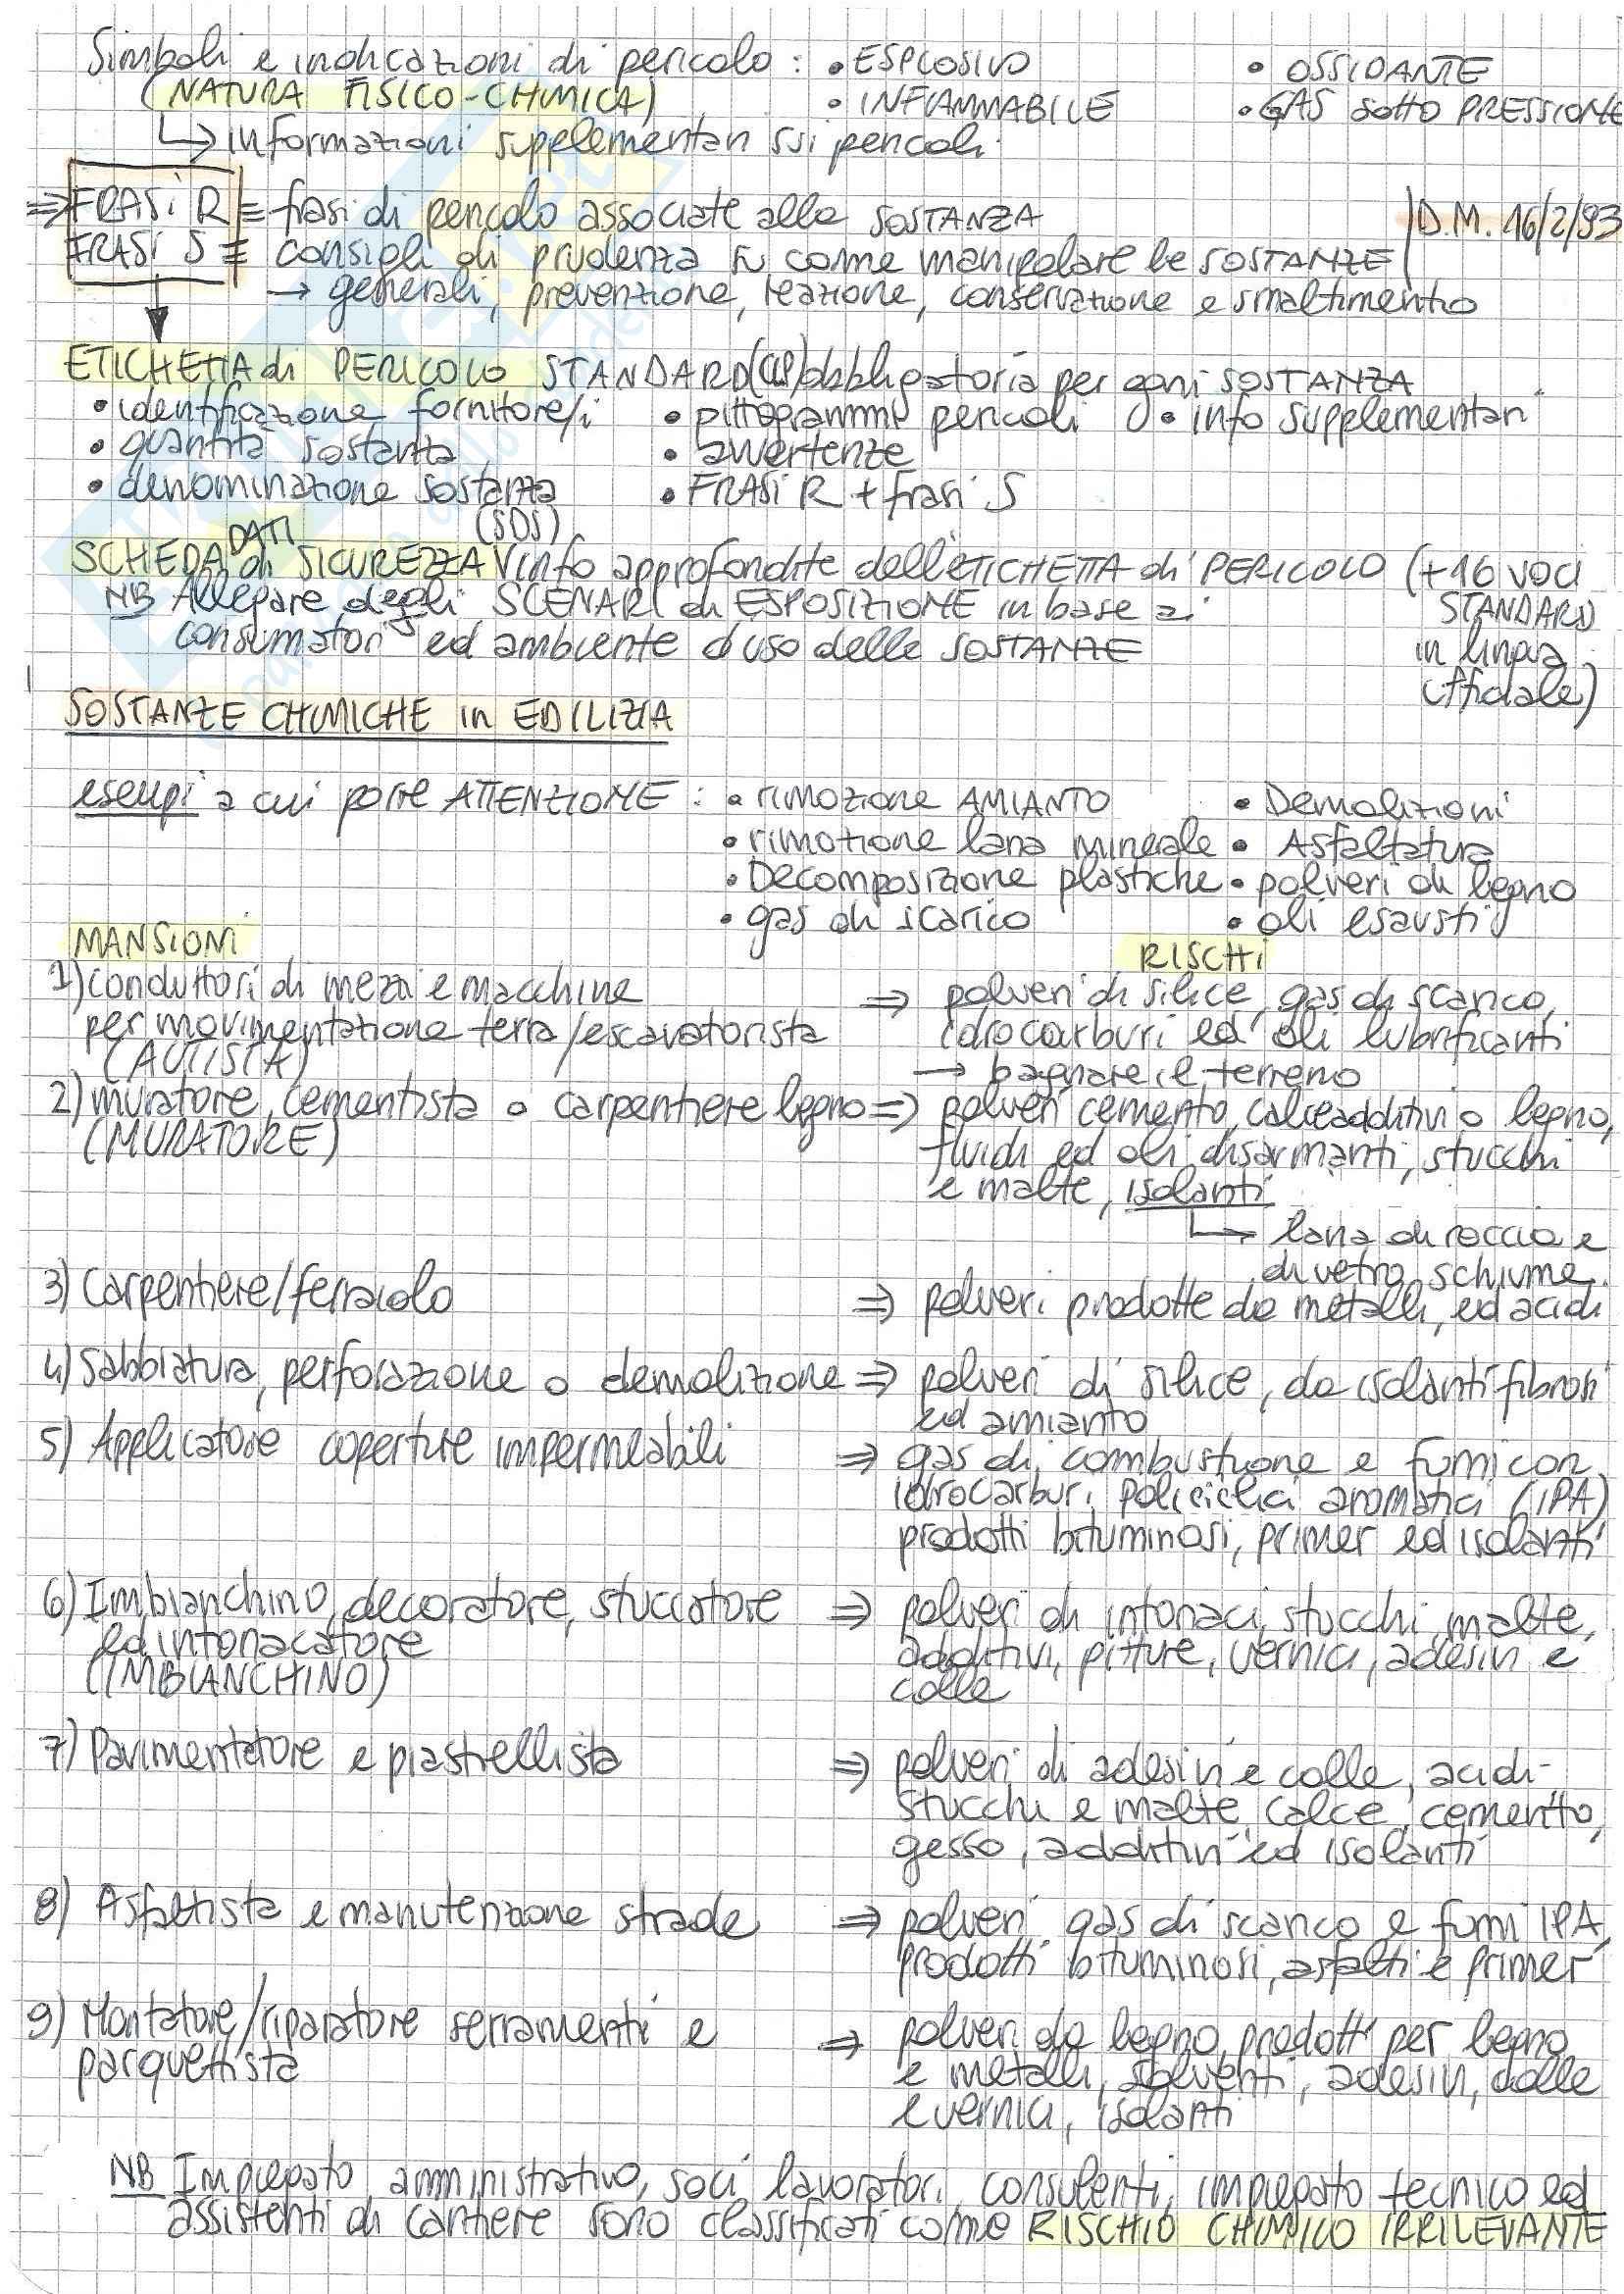 Simboli e indicazioni di pericolo : • ESPLOSIVO • OSSIDANTE
(NATURA FISICO-CHIMICA) • INFIAMMABILE • GAS sotto PRESSIONE
↳ informazioni supplementari sui pericoli
⇒ FRASI R ≡ frasi di pericolo associate alla SOSTANZA | D.M. 16/2/93
FRASI S ≡ consigli di prudenza su come manipolare le SOSTANZE
→ generali, prevenzione, reazione, conservazione e smaltimento
ETICHETTA di PERICOLO STANDARD (CLP) obbligatoria per ogni SOSTANZA
• identificazione fornitore/i • pittogrammi pericoli • info supplementari
• quantità sostanza • avvertenze
• denominazione sostanza • FRASI R + frasi S
SCHEDA DATI di SICUREZZA (SDS) V info approfondite dell'ETICHETTA di PERICOLO (+16 voci
NB Allegare degli SCENARI di ESPOSIZIONE in base ai STANDARD
consumatori ed ambiente d'uso delle SOSTANZE in lingua
ufficiale)
SOSTANZE CHIMICHE in EDILIZIA
esempi a cui porre ATTENZIONE : • rimozione AMIANTO • Demolizioni
• rimozione lana minerale • Asfaltatura
• Decomposizione plastiche • polveri di legno
• gas di scarico • oli esausti
MANSIONI RISCHI
1) Conduttori di mezzi e macchine ⇒ polveri di silice, gas di scarico,
per movimentazione terra/escavatorista idrocarburi ed oli lubrificanti
(AUTISTA) → bagnare il terreno
2) muratore, cementista o carpentiere legno ⇒ polveri cemento, calce additivi o legno,
(MURATORE) fluidi ed oli disarmanti, stucchi
e malte, isolanti
↳ lana di roccia e
di vetro, schiume.
3) Carpentiere/ferraiolo ⇒ polveri prodotte da metalli, ed acidi
4) Sabbiatura, perforazione o demolizione ⇒ polveri di silice, da isolanti fibrosi
ed amianto
5) Applicatore coperture impermeabili ⇒ gas di combustione e fumi con
idrocarburi policiclici aromatici (IPA)
prodotti bituminosi, primer ed isolanti
6) Imbianchino, decoratore, stuccatore ⇒ polveri di intonaci, stucchi, malte,
ed intonacatore additivi, pitture, vernici, adesivi e
(IMBIANCHINO) colle
7) Pavimentatore e piastrellista ⇒ polveri di adesivi e colle, acidi-
stucchi e malte, calce, cemento,
gesso, additivi ed isolanti
8) Asfaltista e manutenzione strade ⇒ polveri, gas di scarico e fumi IPA,
prodotti bituminosi, asfalti e primer
9) Montatore/riparatore serramenti e ⇒ polveri da legno, prodotti per legno
parquettista e metalli, solventi, adesivi, colle
e vernici, isolanti
NB Impiegato amministrativo, soci lavoratori, consulenti, impiegato tecnico ed
assistenti di cantiere sono classificati come RISCHIO CHIMICO IRRILEVANTE